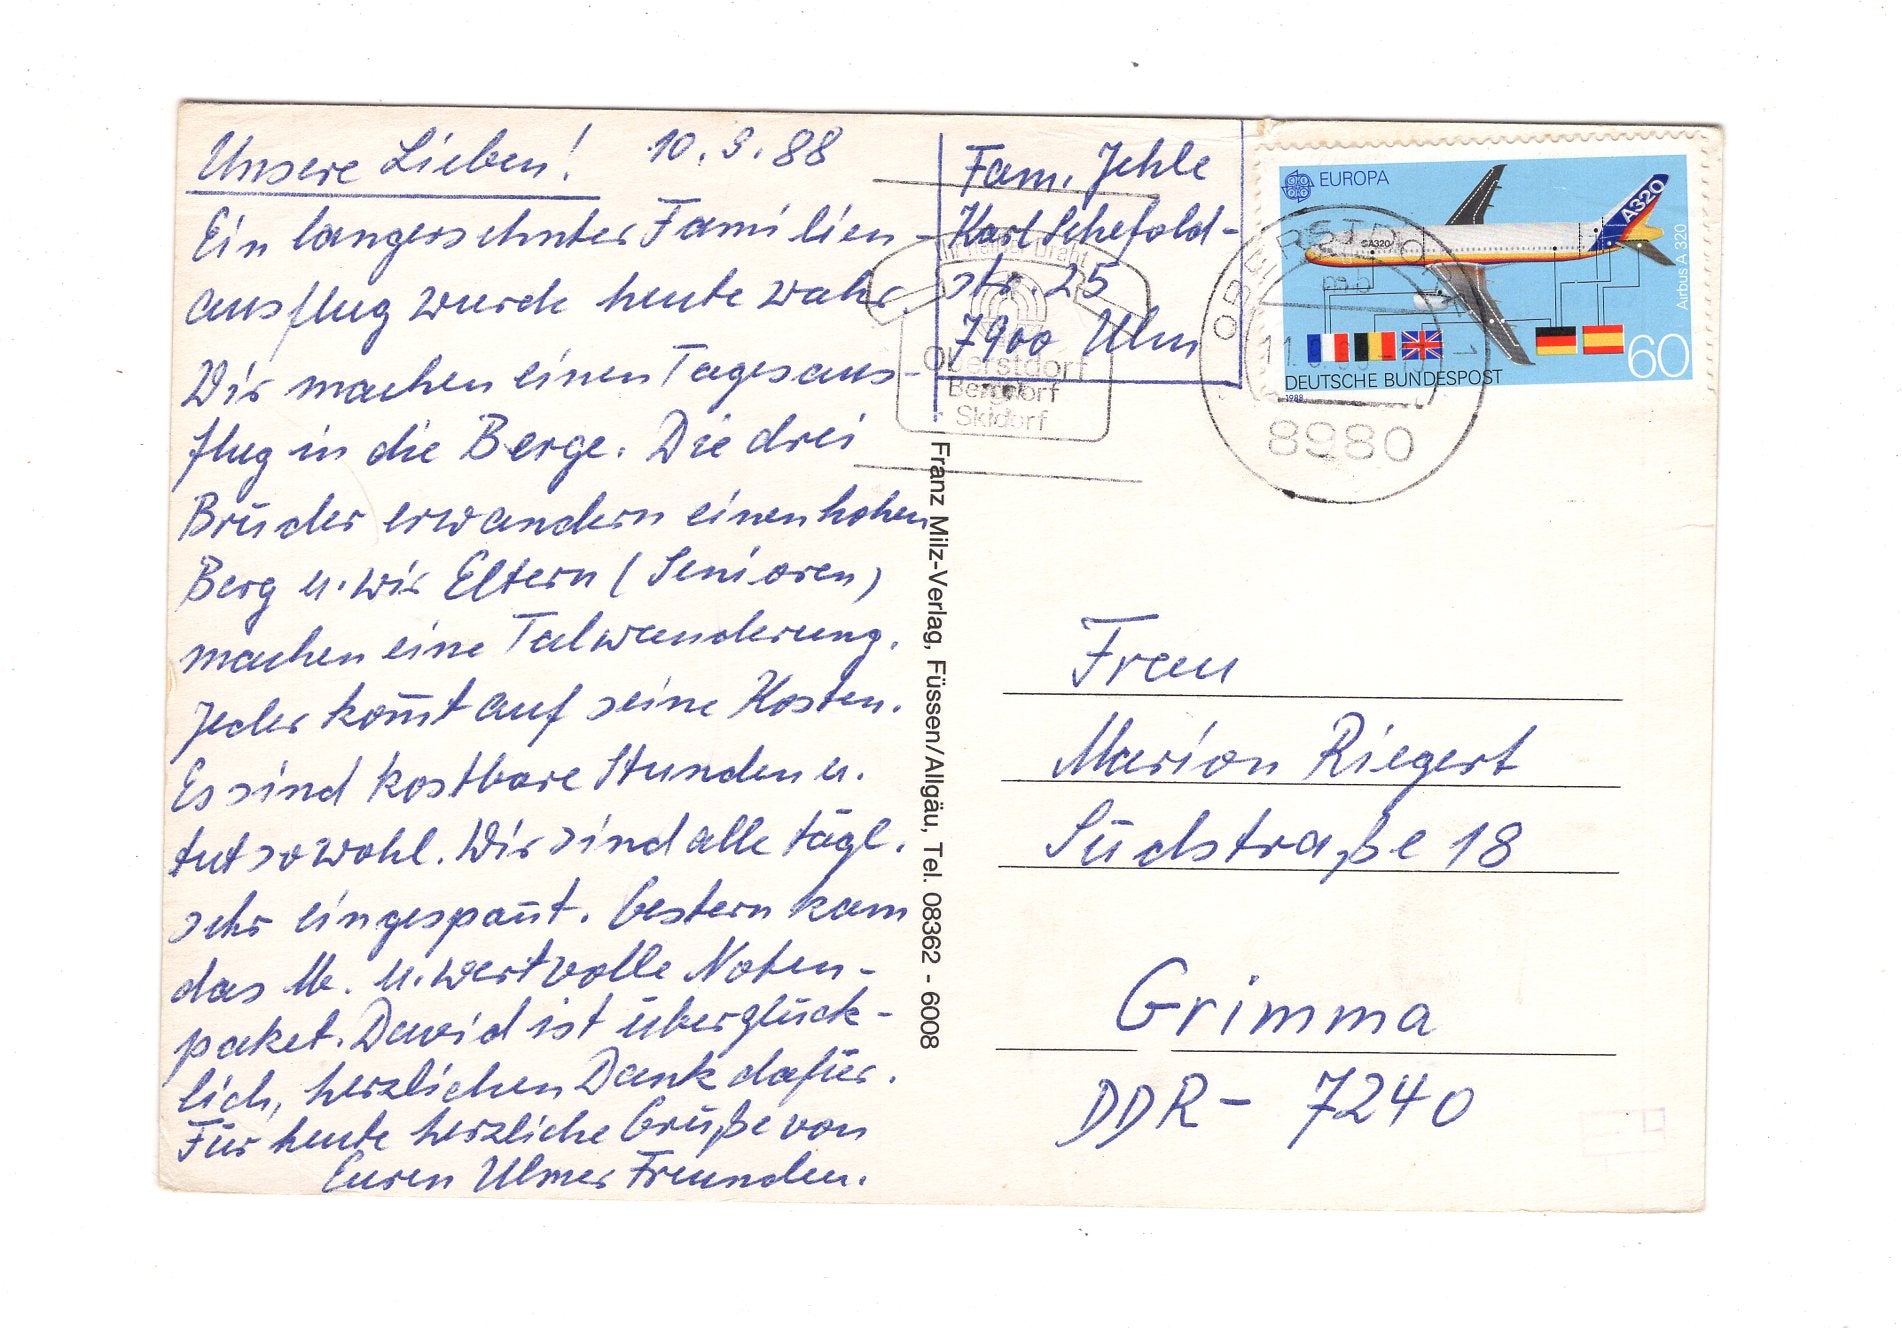 Unsere Lieben! 10.9.88
Ein langersehnter Familien-
ausflug wurde heute wahr.
Wir machen einen Tagesaus-
flug in die Berge. Die drei
Brüder erwandern einen hohen
Berg u. wir Eltern (Senioren)
machen eine Talwanderung.
Jeder kom̄t auf seine Kosten.
Es sind kostbare Stunden u.
tut so wohl. Wir sind alle tägl.
sehr eingespan̄t. Gestern kam
das u. wertvolle Noten-
paket. David ist überglück-
lich, herzlichen Dank dafür.
Für heute herzliche Grüße von
Euren Ulmer Freunden.
Fam. Jehle
Karl Schefold-
str. 25
7900 Ulm
Ihr Draht
Oberstdorf
Bergdorf
Skidorf
EUROPA
A320
A320
Airbus A 320
DEUTSCHE BUNDESPOST
1988
60
OBERSTDORF 1
8980
Franz Milz-Verlag, Füssen/Allgäu, Tel. 08362 - 6008
Frau
Marion Riegert
Südstraße 18
Grimma
DDR- 7240